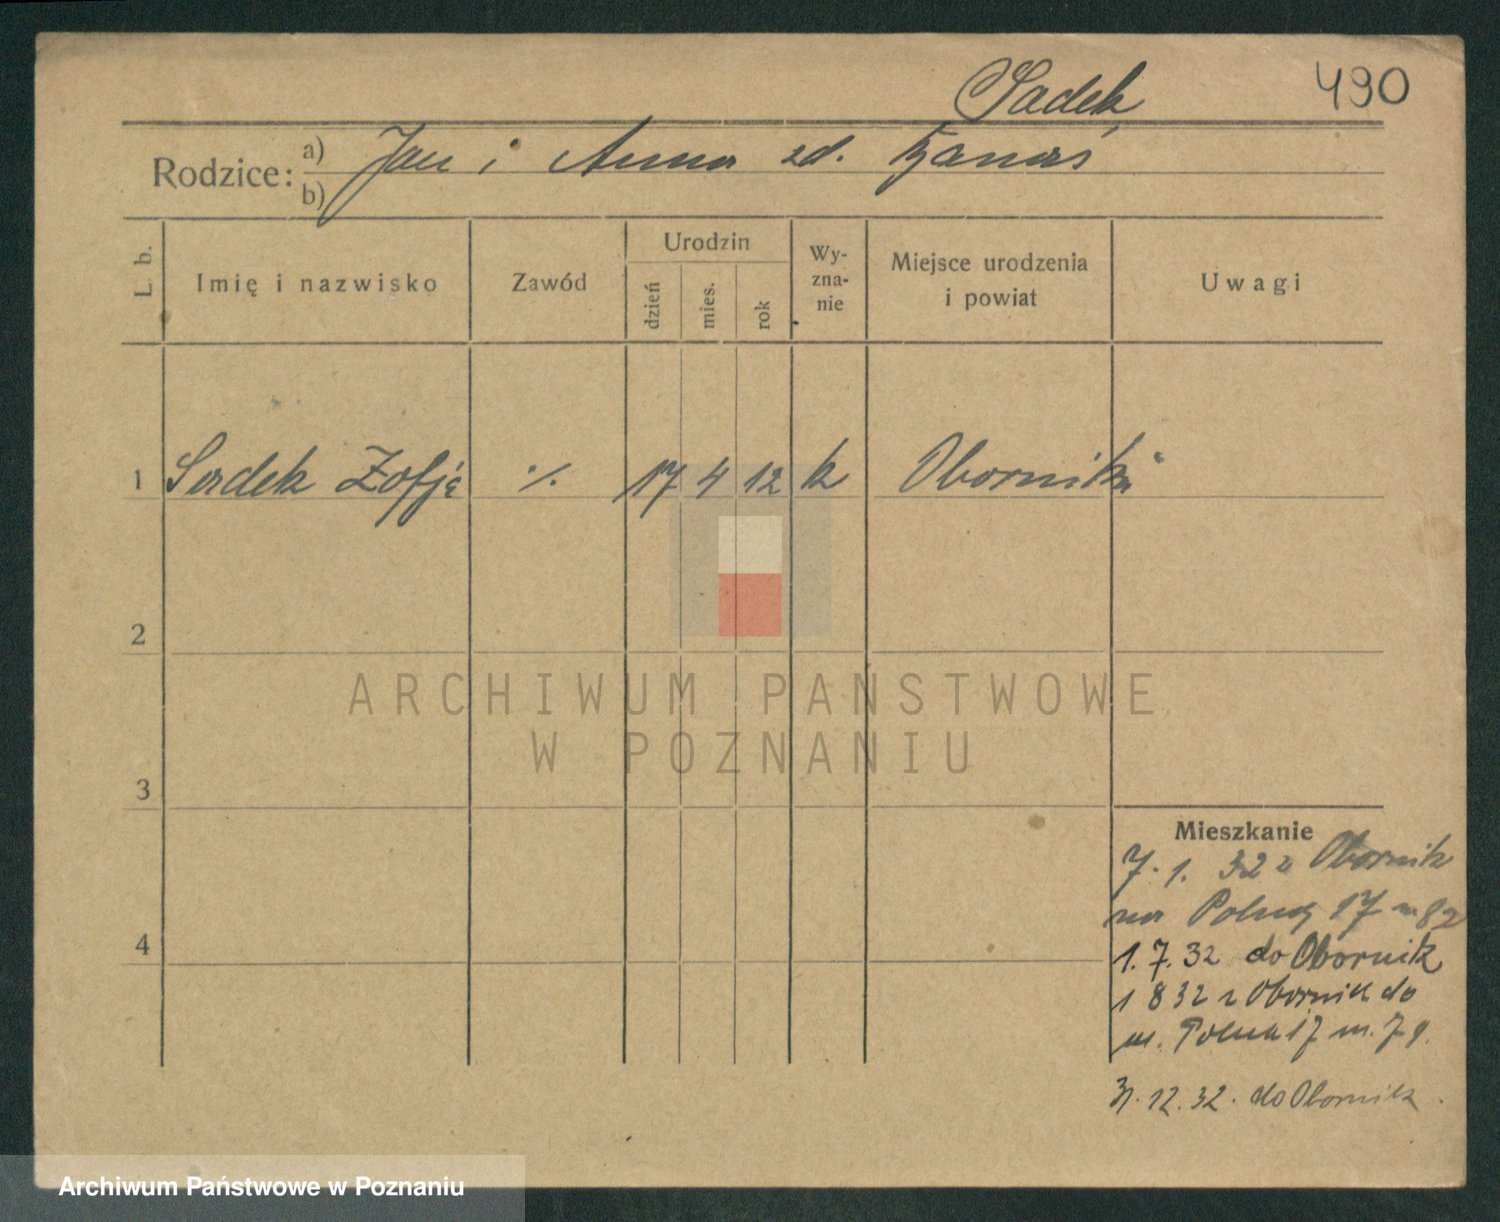 Sadek 490
Rodzice: a) Jan i Anna zd.
b)
L. b. Imię i nazwisko Zawód Urodzin dzień mies. rok Wy-zna-nie Miejsce urodzenia i powiat Uwagi
1 Sadek Zofja ·/. 17 4 12 k Oborniki
2
ARCHIWUM PAŃSTWOWE
W POZNANIU
3
Mieszkanie
7. 1. 32 z Obornik
na 17 m 82
4
1. 7. 32 do Obornik
1 8 32 z Obornik do
17 m. 7
31. 12. 32. do Obornik.
Archiwum Państwowe w Poznaniu